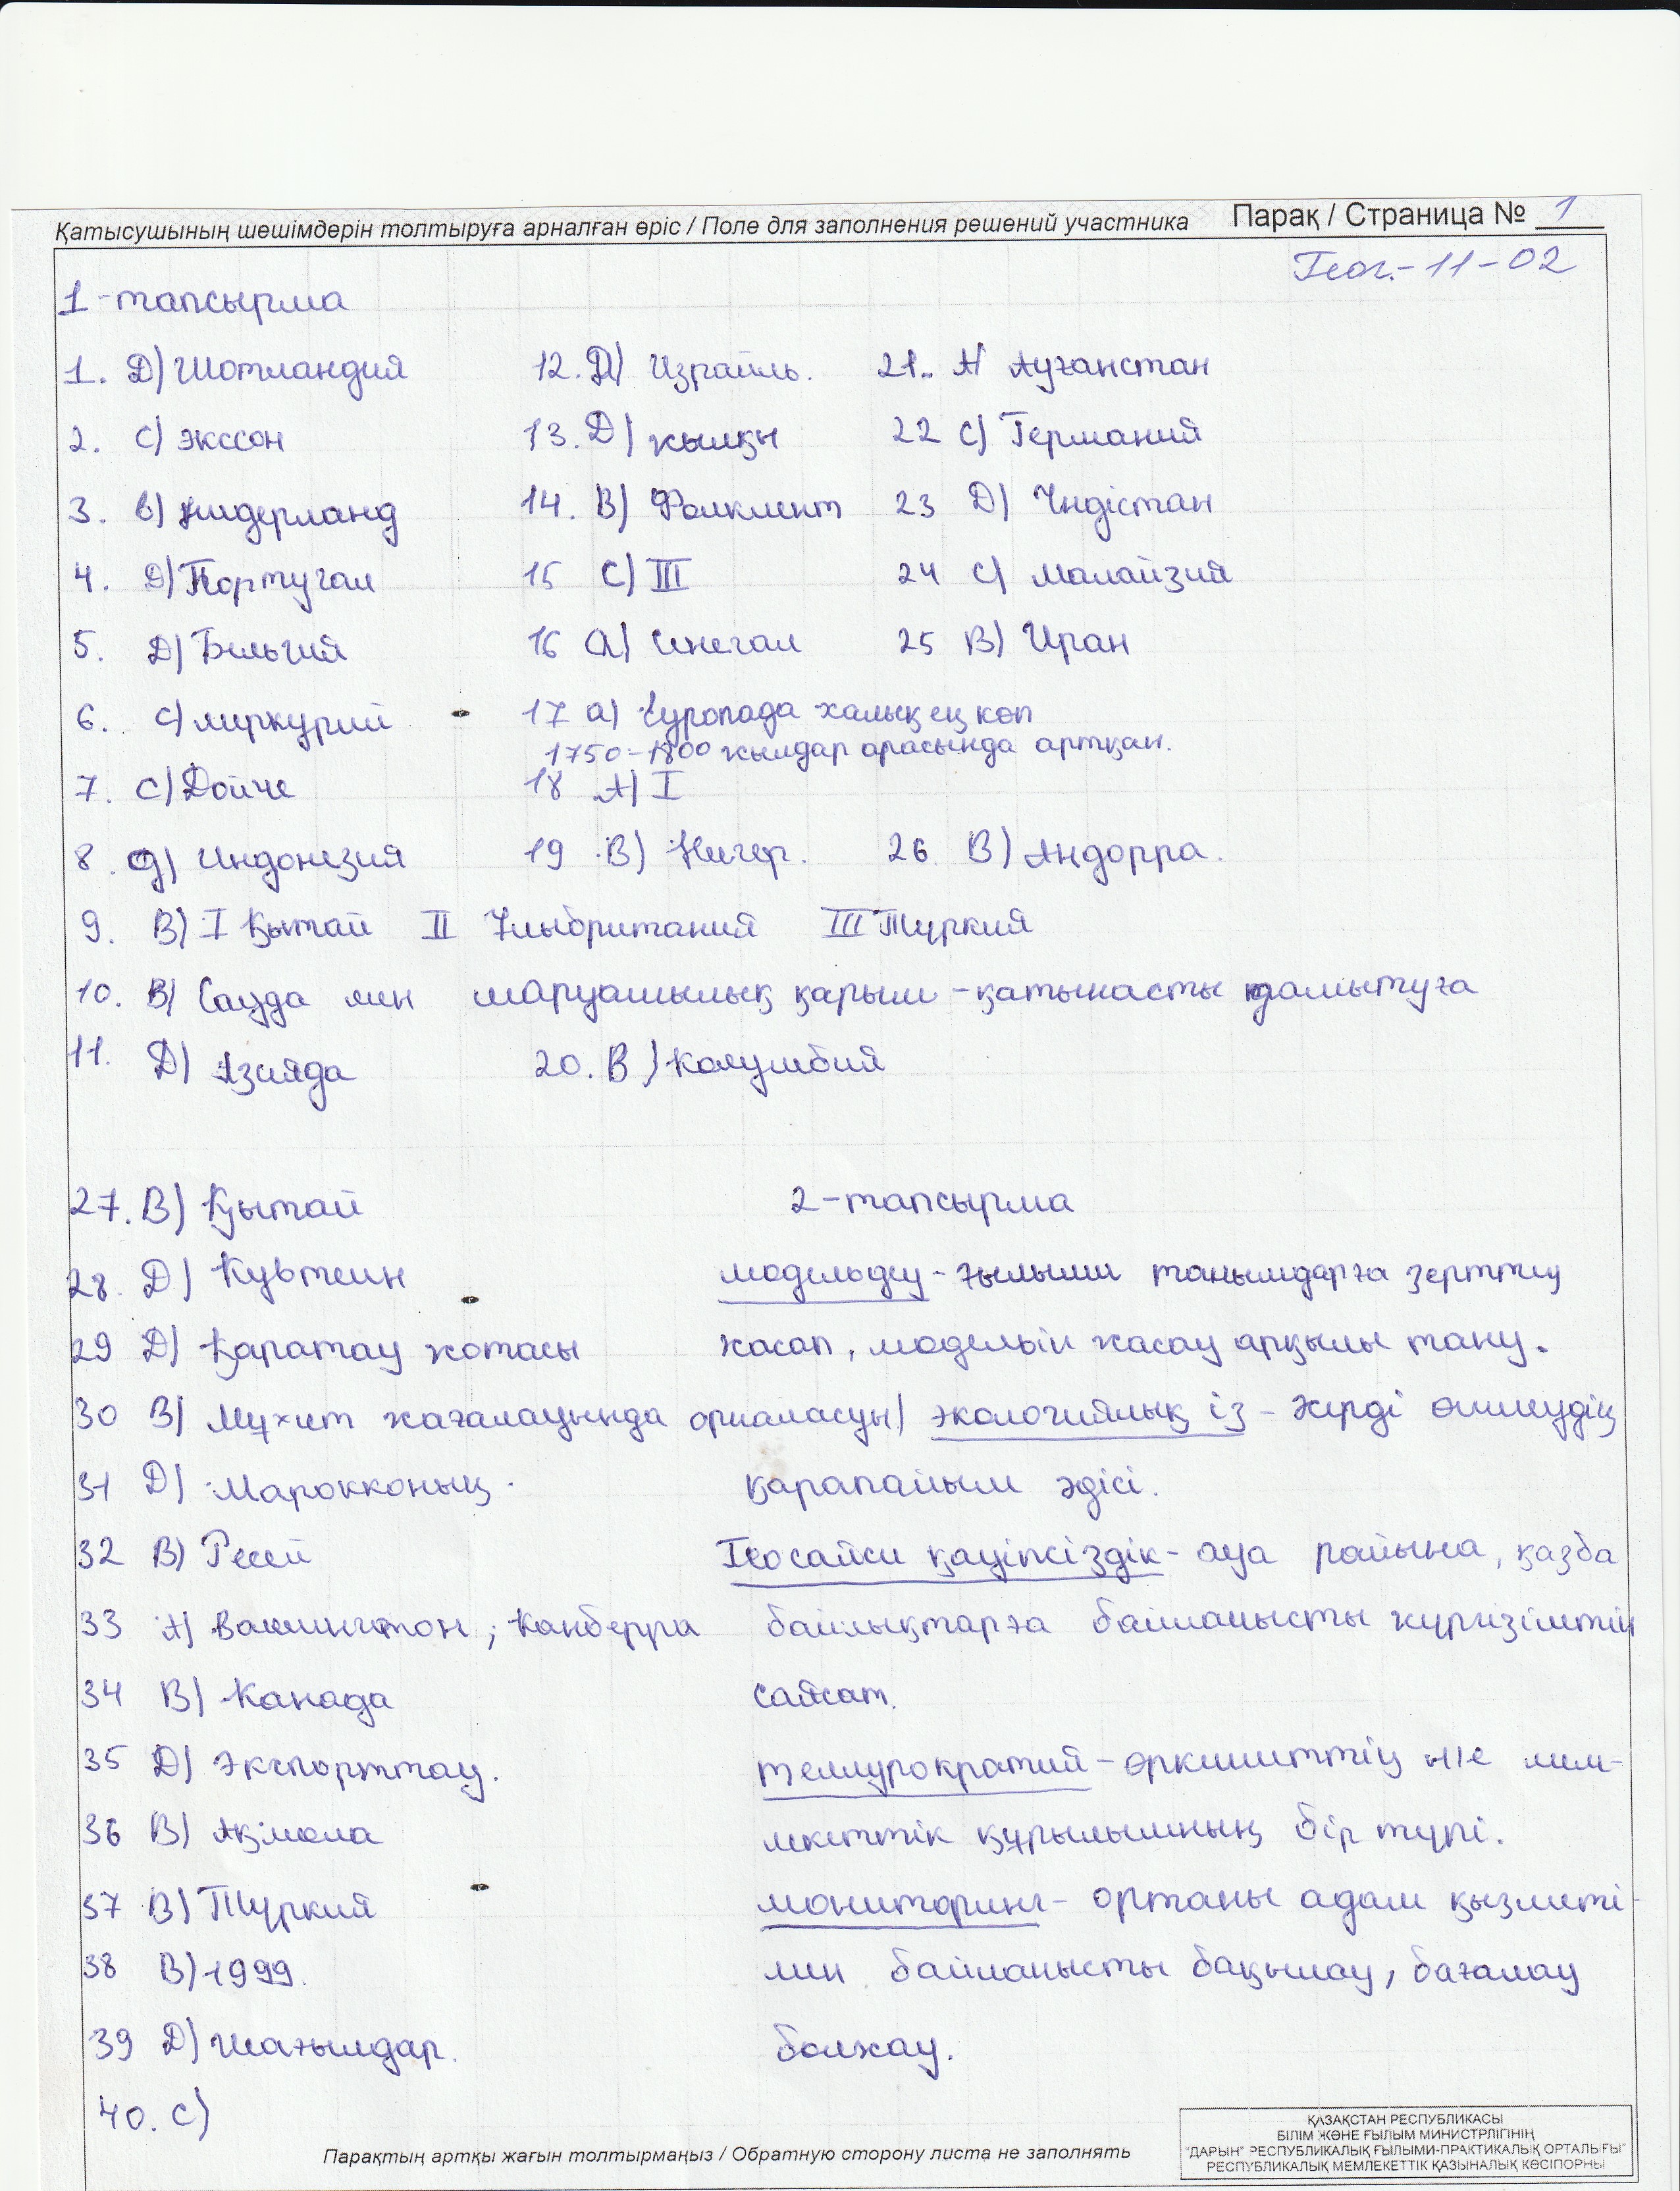 Қатысушының шешімдерін толтыруға арналған өріс / Поле для заполнения решений участника Парақ / Страница № 1
Геог.-11-02
1-тапсырма
1. D) Шотландия 12. D) Израиль. 21. A) Ауғанстан
2. C) Экссон 13. D) жылқы 22 C) Германия
3. B) Нидерланд 14. B) Фолкленд 23 D) Үндістан
4. D) Португал 15 C) III 24 C) Малайзия
5. D) Бельгия 16 A) Сенегал 25 B) Иран
6. C) меркурий 17 a) Еуропада халық ең көп
1750-1800 жылдар арасында артқан.
7. C) Дойче 18 A) I
8. D) Индонезия 19 B) Нигер. 26. B) Андорра.
9. B) I Қытай II Ұлыбритания III Түркия
10. B) Сауда мен шаруашылық қарым-қатынасты дамытуға
11. D) Азияда 20. B) Колумбия
27. B) Қытай 2-тапсырма
28. D) Кувтеин модельдеу - ғылыми танымдарға зерттеу
29 D) Қаратау жотасы жасап, моделін жасау арқылы тану.
30 B) Мұхит жағалауында орналасуы экологиялық із - Жерді өлшеудің
31 D) Марокконың. қарапайым әдісі.
32 B) Ресей Геосаяси қауіпсіздік - ауа райына, қазба
33 A) Вашингтон, Канберра байлықтарға байланысты жүргізілетін
34 B) Канада саясат.
35 D) Экспорттау. теллурократия - өркениеттің н/е мем-
36 B) Ақмола лекеттік құрылымның бір түрі.
37 B) Түркия мониторинг - ортаны адам қызметі-
38 B) 1999. мен байланысты бақылау, бағалау
39 D) Шағылдар. болжау.
40. C)
Парақтың артқы жағын толтырмаңыз / Обратную сторону листа не заполнять
ҚАЗАҚСТАН РЕСПУБЛИКАСЫ
БІЛІМ ЖӘНЕ ҒЫЛЫМ МИНИСТРЛІГІНІҢ
"ДАРЫН" РЕСПУБЛИКАЛЫҚ ҒЫЛЫМИ-ПРАКТИКАЛЫҚ ОРТАЛЫҒЫ"
РЕСПУБЛИКАЛЫҚ МЕМЛЕКЕТТІК ҚАЗЫНАЛЫҚ КӘСІПОРНЫ